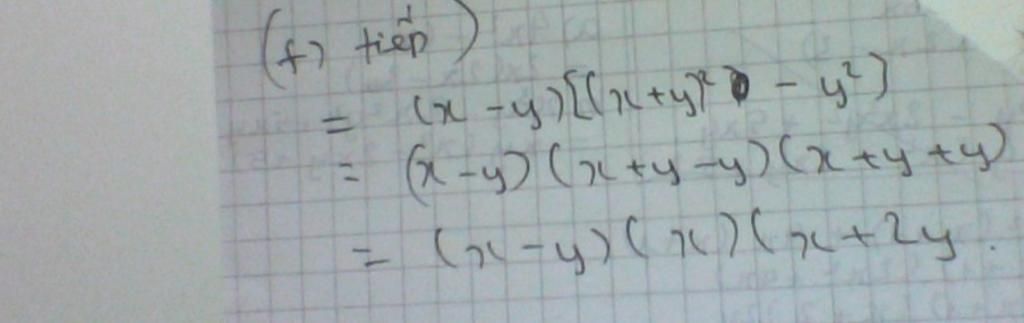 (f) tiếp)
= (x - y)[(x+y)² - y²]
= (x-y)(x+y-y)(x+y+y)
= (x-y)(x)(x+2y.